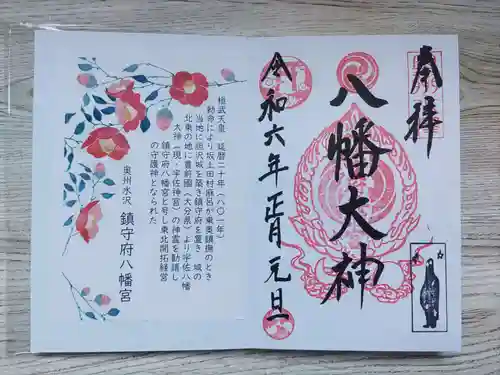 奉拝
八幡大神
令和六年正月元旦
桓武天皇 延暦二十年(八〇一年)
勅命により坂上田村麻呂が東奥鎮撫のとき
当地に胆沢城を築き鎮守府を置き、城の
北東の地に豊前國(大分県)より宇佐八幡
大神(現・宇佐神宮)の神霊を勧請し
鎮守府八幡宮と号し東北開拓経営
の守護神となられた
奥州水沢 鎮守府八幡宮